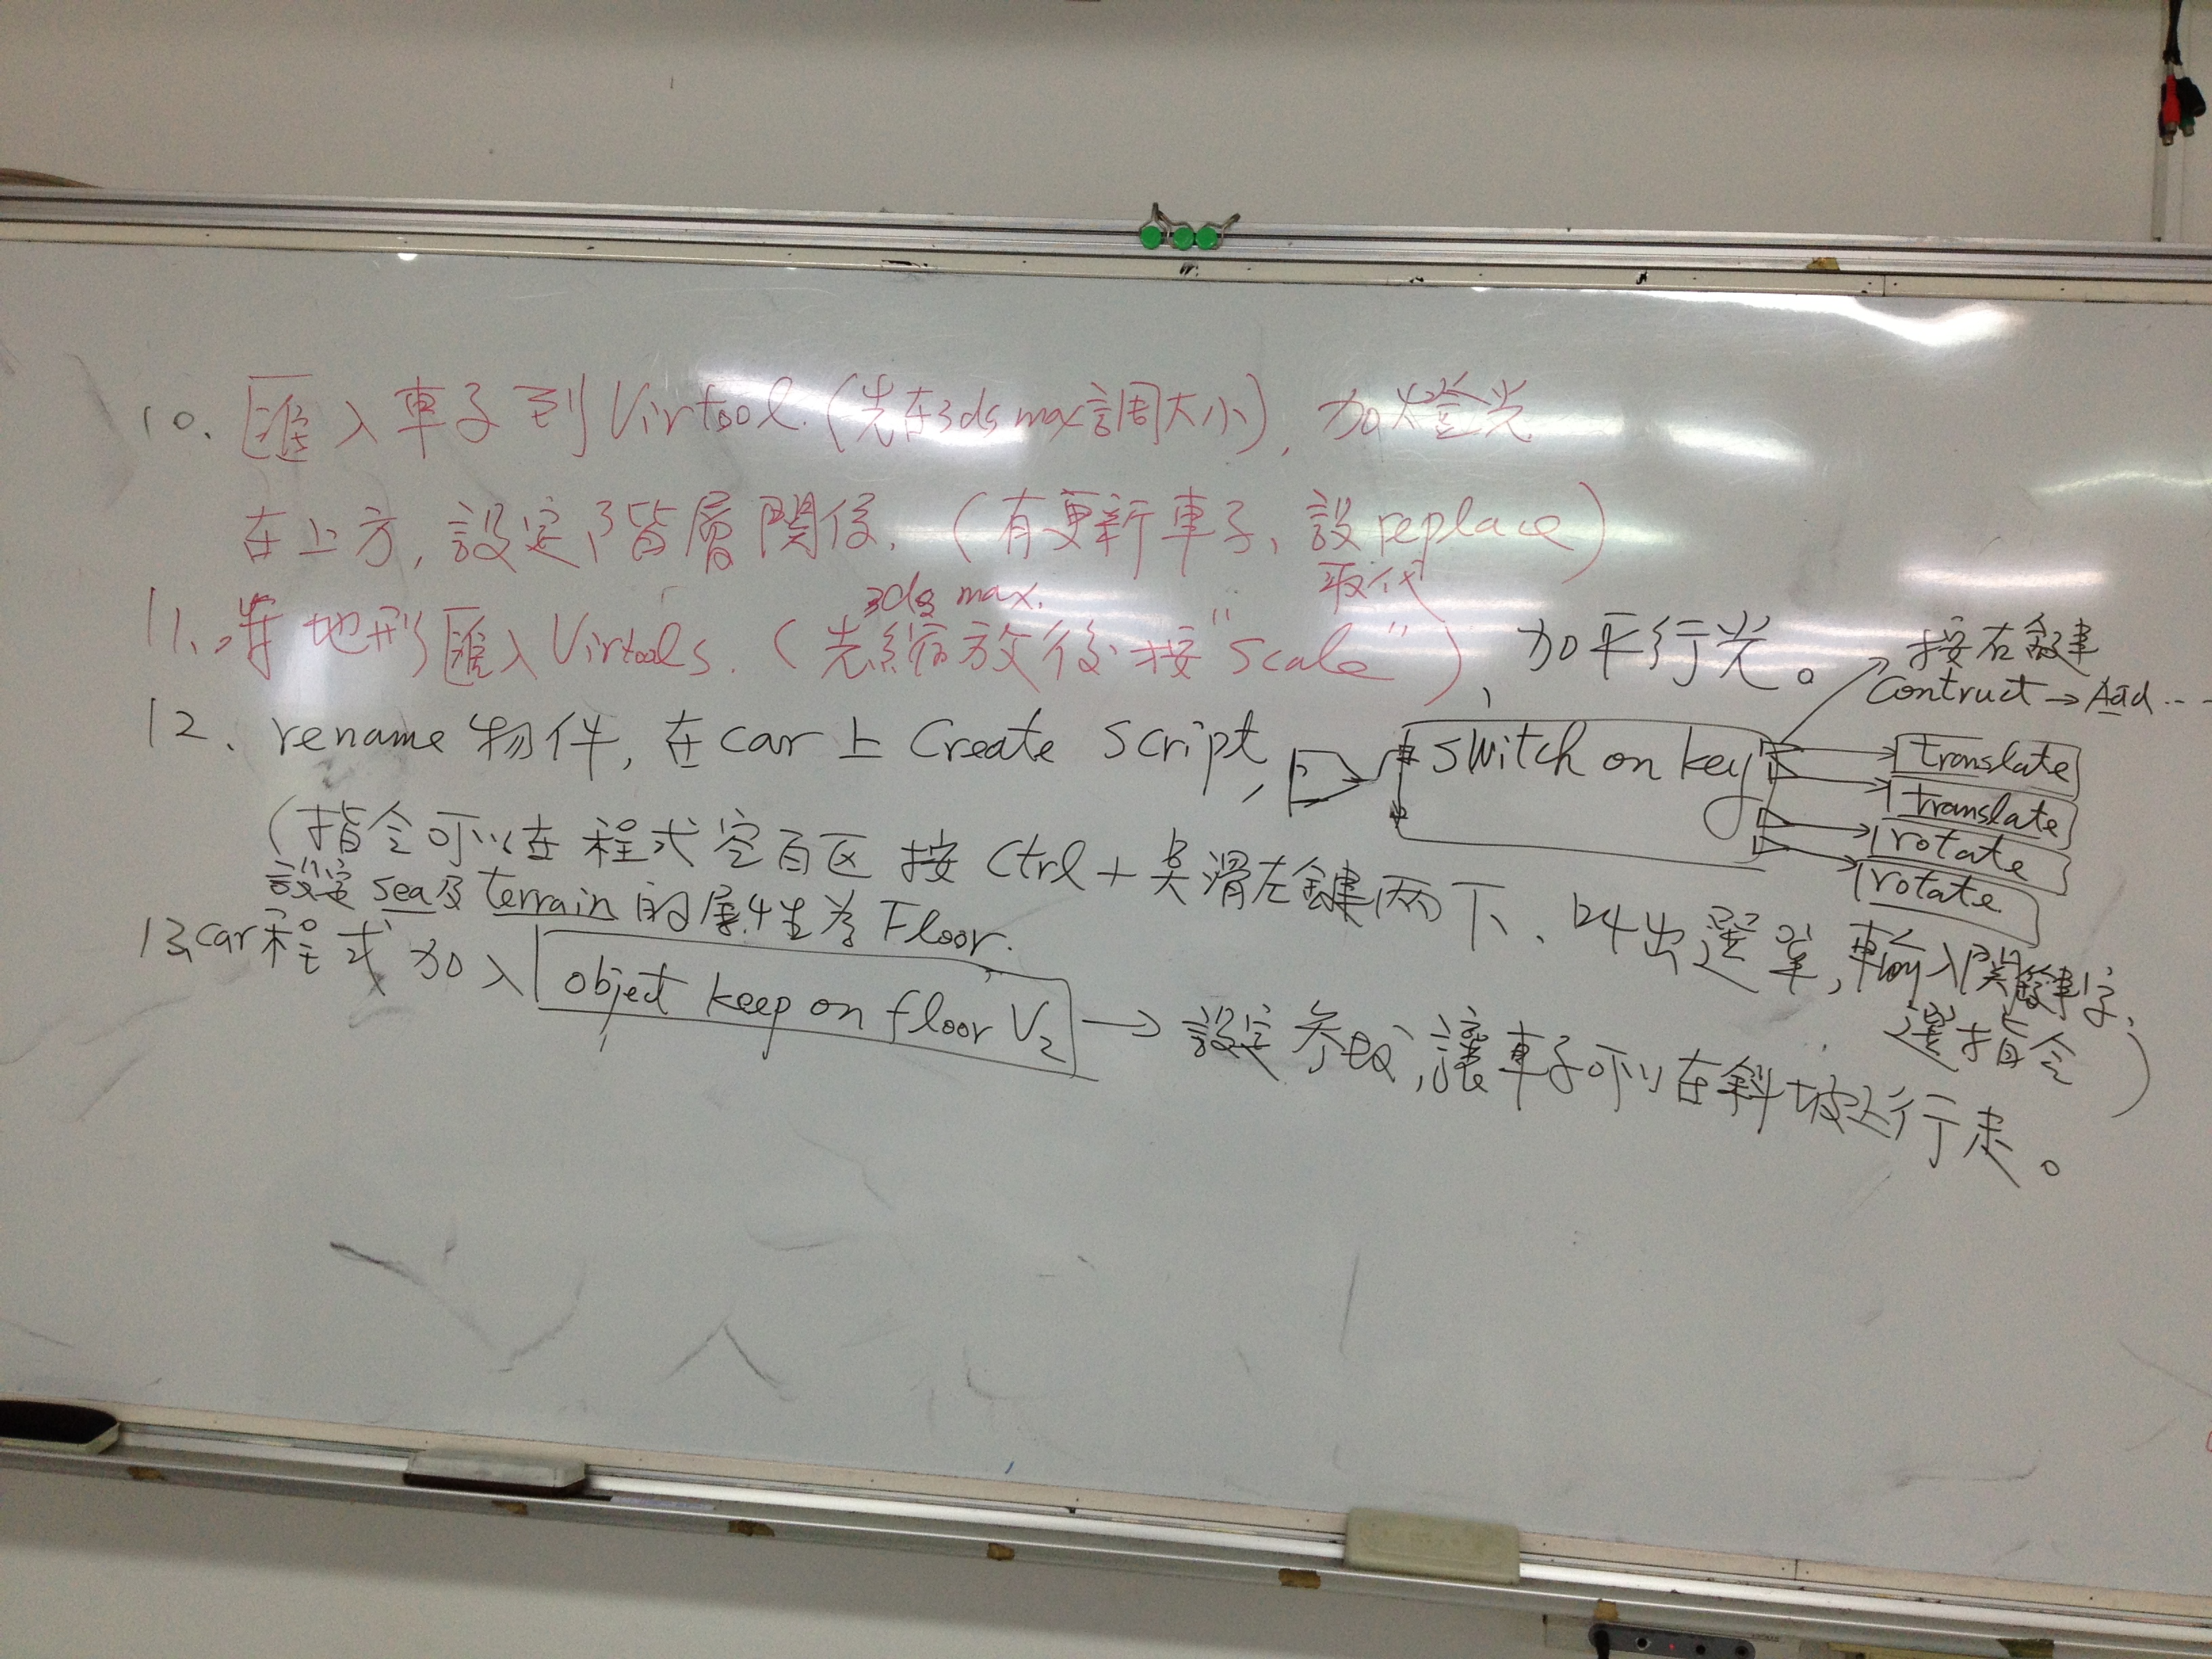 10. 匯入車子到Virtool.(先在3ds max調大小), 加燈光
在上方, 設定階層關係. (有更新車子、設replace)
取代
3ds max.
11. 將地形匯入Virtools. (先縮放後按"Scale"), 加平行光。
按右鍵
Contruct → Add...
12、rename物件, 在car上Create Script,
switch on key
translate
translate
rotate
rotate
(指令可以在程式空白区按Ctrl+滑左鍵兩下、叫出選單, 輸入関鍵字, 選指令)
設定sea及terrain的屬性為Floor.
13、car程式加入 object keep on floor V2 → 設定参数, 讓車子可以在斜坡上行走。